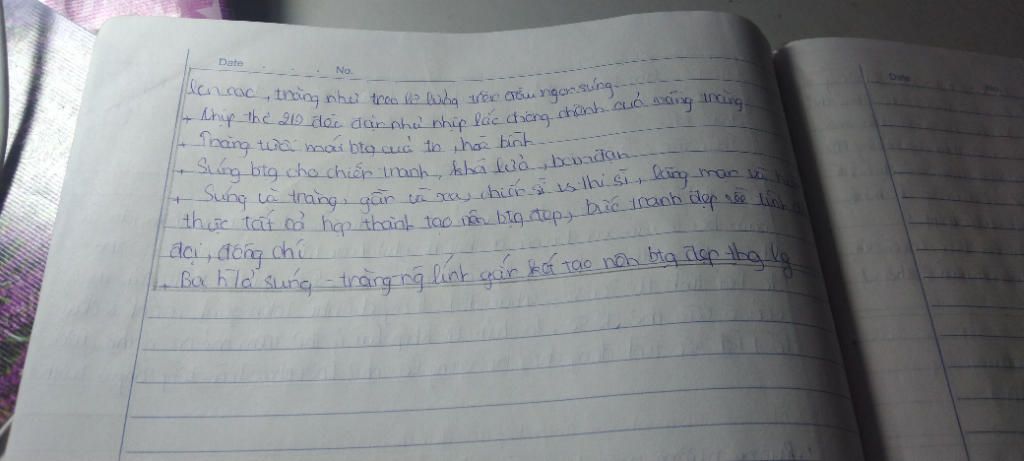 Date No. Date
lên cao, trăng như treo lơ lửng trên đầu ngọn súng.
+ Nhịp thơ 2/2 độc đáo như nhịp lắc chông chênh của mảng trăng
+ Trăng tươi mát btg của tn, hoà bình
+ Súng btg cho chiến tranh, khói lửa, bom đạn
+ Súng và trăng, gần và xa, chiến sĩ vs thi sĩ, lãng mạn và
thực tất cả hợp thành tạo nên btg đẹp, bức tranh đẹp về tình
đội, đồng chí
+ Ba h/ả súng - trăng ng lính gắn kết tạo nên btg đẹp